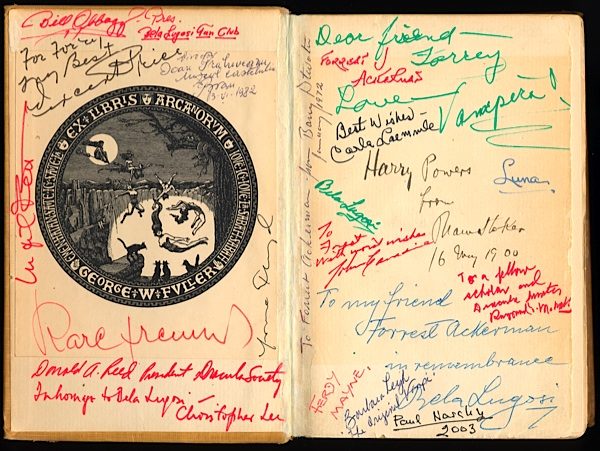 Bill Obbagy Pres.
Bela Lugosi Fan Club
For Forry
my Best +
Vincent Price
EX LIBRIS ARCANORVM
GEORGE W FVLLER
Karl Freund
Donald A. Reed President Dracula Society
In homage to Bela Lugosi —
Christopher Lee
To Forrest Ackerman — from Barry Atwater
January / 1972
Dear friend —
Forrey
Forrest
Ackerman
Love
Vampira!
Best Wishes —
Carla Laemmle
Harry Powers
from
Bram Stoker
16 May 1900
Luna
Bela Lugosi
To
Forrest
With warm wishes
John Carradine
To a fellow
scholar and
Dracula
Raymond T. McNally
To my friend
Forrest Ackerman
in remembrance
Bela Lugosi
FERDY
MAYNE.
Barbara Leigh
the Original Vampi
Paul Naschy
2003